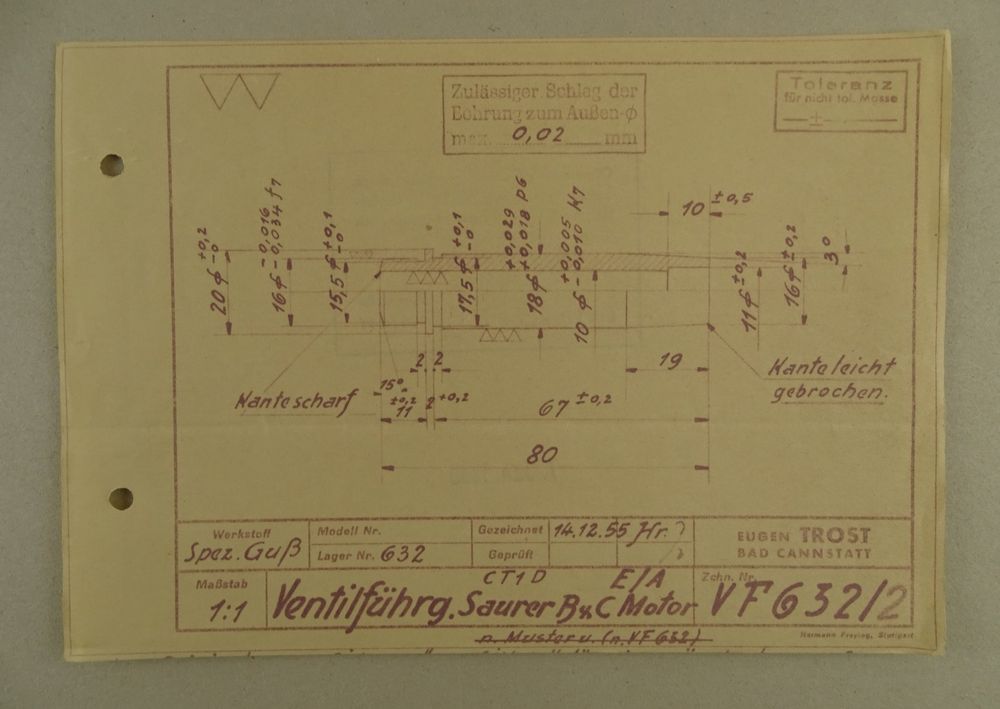 Zulässiger Schlag der
Bohrung zum Außen-ϕ
max. 0,02 mm
Toleranz
für nicht tol. Masse
±
20 ϕ +0,2 -0
16 ϕ -0,016 -0,034 f7
15,5 ϕ +0,1 -0
17,5 ϕ +0,1 -0
18 ϕ +0,029 +0,018 p6
10 ϕ +0,005 -0,010 K7
10 ±0,5
11 ϕ ±0,2
16 ϕ ±0,2
3°
2 2
19
15°
Kante scharf
±0,2
11
2 +0,2
67 ±0,2
Kante leicht
gebrochen.
80
Werkstoff
Spez. Guß
Modell Nr.
Lager Nr. 632
Gezeichnet 14.12.55 Hr.
Geprüft
EUGEN TROST
BAD CANNSTATT
Maßstab
1:1
CT1D E/A
Ventilführg. Saurer B u. C Motor
Zchn. Nr.
VF 632/2
n. Muster u. (n. VF 632)
Hermann Freying, Stuttgart